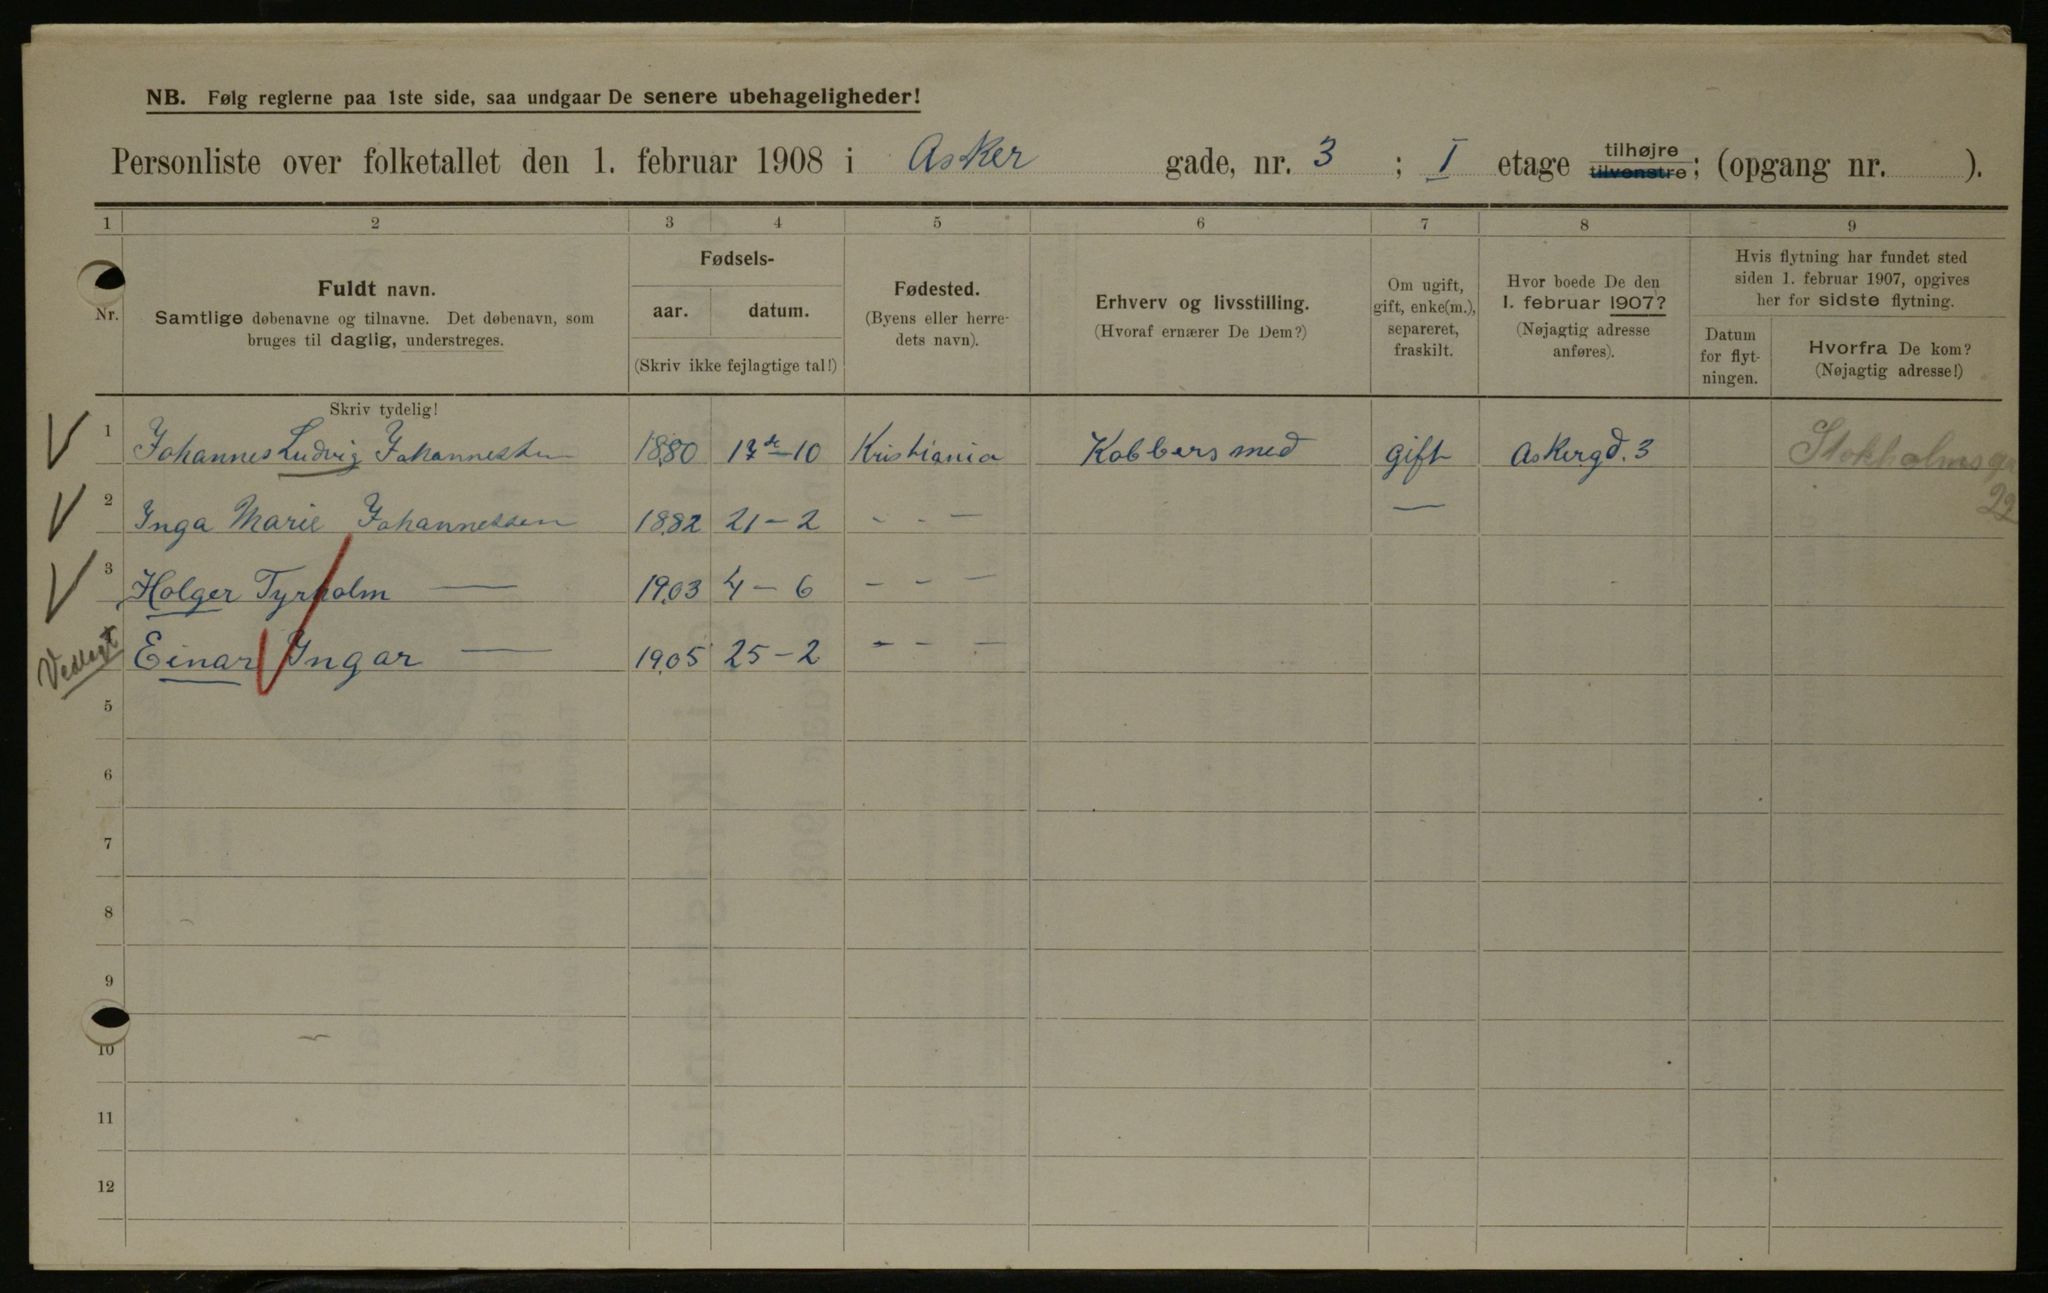 NB. Følg reglerne paa 1ste side, saa undgaar De senere ubehageligheder!
Personliste over folketallet den 1. februar 1908 i Asker gade, nr. 3 ; I etage tilhøjre tilvenstre; (opgang nr. ).
1 2 3 4 5 6 7 8 9
Nr.
Fuldt navn.
Samtlige døbenavne og tilnavne. Det døbenavn, som
bruges til daglig, understreges.
Fødsels-
aar. datum.
(Skriv ikke fejlagtige tal!)
Fødested.
(Byens eller herre-
dets navn).
Erhverv og livsstilling.
(Hvoraf ernærer De Dem?)
Om ugift,
gift, enke(m.),
separeret,
fraskilt.
Hvor boede De den
1. februar 1907?
(Nøjagtig adresse
anføres).
Hvis flytning har fundet sted
siden 1. februar 1907, opgives
her for sidste flytning.
Datum
for flyt-
ningen.
Hvorfra De kom?
(Nøjagtig adresse!)
Skriv tydelig!
1 Johannes Ludvig Johannessen 1880 17de-10 Kristiania Kobbersmed gift Askergd. 3 Stokholmsgt
22
2 Inga Marie Johannessen 1882 21-2 - - - —
3 Holger Tyrholm — 1903 4-6 - - -
Vedlagt Einar Ingar — 1905 25-2 - - -
5
6
7
8
9
10
11
12